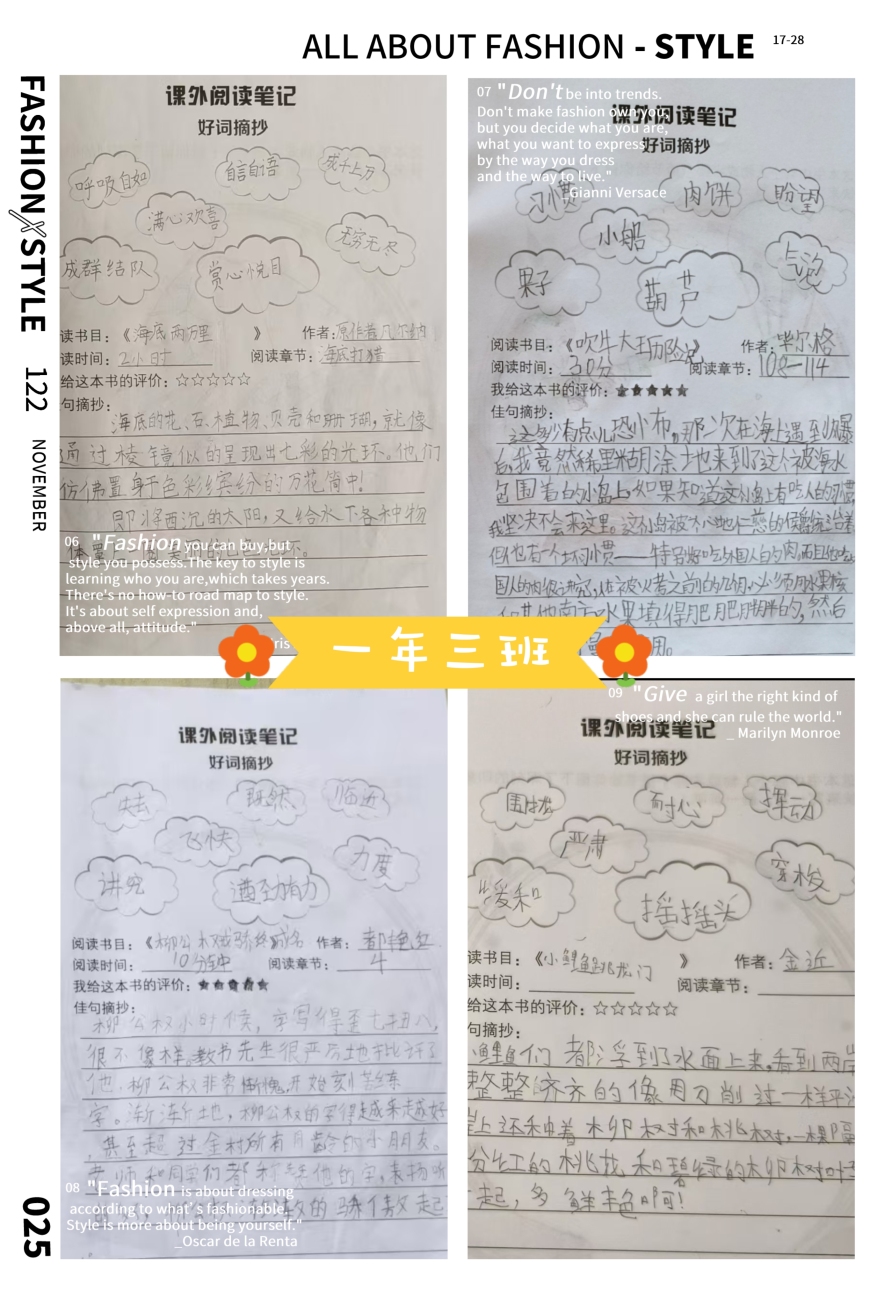 ALL ABOUT FASHION - STYLE 17-28
FASHION X STYLE 122 NOVEMBER
025
课外阅读笔记
好词摘抄
呼吸自如
自言自语
成千上万
满心欢喜
无穷无尽
成群结队
赏心悦目
读书目：《海底两万里》 作者：原作者凡尔纳
读时间：2小时 阅读章节：海底打猎
给这本书的评价：☆☆☆☆☆
句摘抄：
海底的花、石、植物、贝壳和珊瑚，就像
通过棱镜似的呈现出七彩的光环。他们
仿佛置身于色彩缤纷的万花筒中！
即将西沉的太阳，又给水下各种物
体
06 "Fashion you can buy,but
style you possess.The key to style is
learning who you are,which takes years.
There's no how-to road map to style.
It's about self expression and,
above all, attitude."
ris
07 "Don't be into trends.
Don't make fashion own you,
but you decide what you are,
what you want to express
by the way you dress
and the way to live."
_Gianni Versace
课外阅读笔记
好词摘抄
习惯
肉饼
盼望
小船
果子
葫芦
阅读书目：《吹牛大王历险记》 作者：毕尔格
阅读时间：30分 阅读章节：108—114
我给这本书的评价：★★★★★
佳句摘抄：
这多少有点儿恐怖，那次在海上遇到爆
后，我竟然稀里糊涂地来到了这个被海水
包围着的小岛上。如果知道这小岛上有吃人的习惯
我坚决不会来这里。这个小岛被
但他有一个坏习惯——特别好吃外国人的肉，而且他吃
国人的肉很讲究，在被火煮之前的几个月，必须用水果
和其他南方水果填得肥肥胖胖的，然后
用。
一年三班
课外阅读笔记
好词摘抄
失去
既然
临近
飞快
力度
讲究
遒劲有力
阅读书目：《柳公权戒骄成名 作者：
阅读时间：10分钟 阅读章节：4
我给这本书的评价：★★★★★
佳句摘抄：
柳公权小时候，字写得歪七扭八，
很不像样。教书先生很严厉地批评了
他，柳公权非常惭愧，开始刻苦练
字。渐渐地，柳公权的字得越来越好
，甚至超过全村所有同龄的小朋友。
老师和同学们都夸赞他的字，表扬听
的骄傲起
08 "Fashion is about dressing
according to what's fashionable.
Style is more about being yourself."
_Oscar de la Renta
09 "Give a girl the right kind of
shoes and she can rule the world."
_ Marilyn Monroe
课外阅读笔记
好词摘抄
围拢
耐心
挥动
严肃
穿梭
缓和
摇摇头
读书目：《小鲤鱼跳龙门》 作者：金近
读时间： 阅读章节：
给这本书的评价：☆☆☆☆☆
句摘抄：
鲤鱼们都浮到了水面上来，看到两岸
整整齐齐的像用刀削过一样平
上还种着柳树和桃树，一棵隔
粉红的桃花和碧绿的柳树叶
起，多鲜丰色啊！